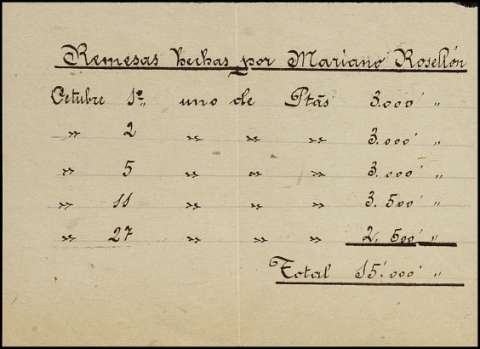 Remesas hechas por Mariano Rosellón
Octubre 1º „ uno de Ptás 3.000' „
» 2 » » » 3.000' „
» 5 » » » 3.000' „
» 11 » » » 3.500' „
» 27 » » » 2.500' „
Total 15.000' „